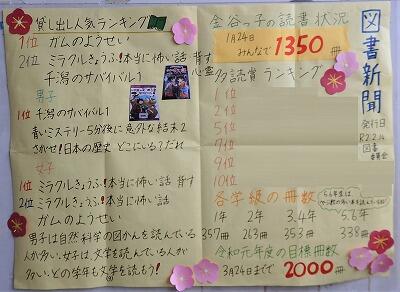 図書新聞
発行日
R2.2.14
図書
委員会
貸し出し人気ランキング
1位 ガムのようせい
2位 ミラクルきょうふ!本当に怖い話 背す
心霊
干潟のサバイバル1
男子
1位 干潟のサバイバル1
青いミステリー5分後に意外な結末2
さがせ!日本の歴史 どこにいる?だれ
女子
1位 ミラクルきょうふ!本当に怖い話 背す
2位 ミラクルきょうふ!本当に怖い話
ガムのようせい
男子は自然科学の図かんを読んでいる
人が多い、女子は、文学を読んでいる人が
多い、どの学年も文学を読もう!
金谷っ子の読書状況
1月24日
みんなで1350冊
多読賞ランキング
1位
2位
5位
7位
9位
10位
各学級の冊数
1年 2年 3,4年 5.6年
357冊 263冊 353冊 338冊
令和元年度の目標冊数
3月24日までで 2000冊